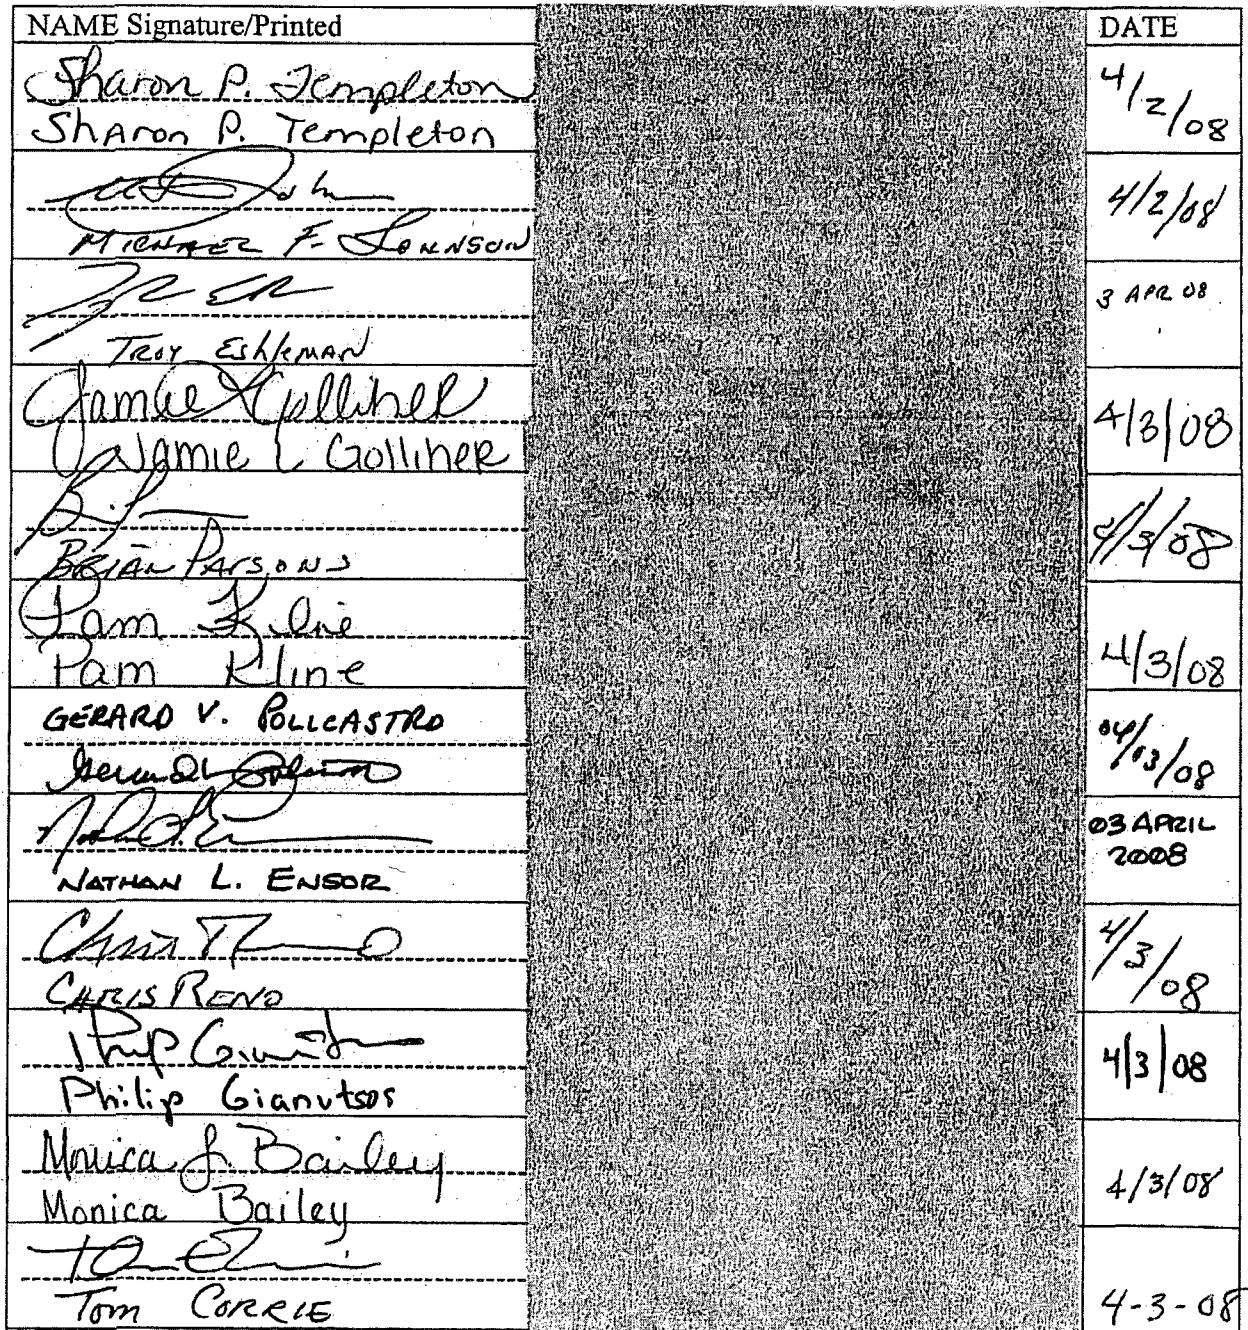 NAME Signature/Printed DATE
Sharon P. Templeton 4/2/08
Sharon P. Templeton
4/2/08
MICHAEL F. JOHNSON
3 APR 08
TROY EShleMAN
Jamie L Golliher 4/3/08
Jamie L Golliher
4/3/08
BRIAN PARSONS
Pam Kline
Pam Kline 4/3/08
GERARD V. POLLCASTRO
04/03/08
03 APRIL
2008
NATHAN L. ENSOR
Chris 4/3/08
CHRIS RENO
4/3/08
Philip Gianutsos
Monica J. Bailey 4/3/08
Monica Bailey
Tom CORRIE 4-3-08